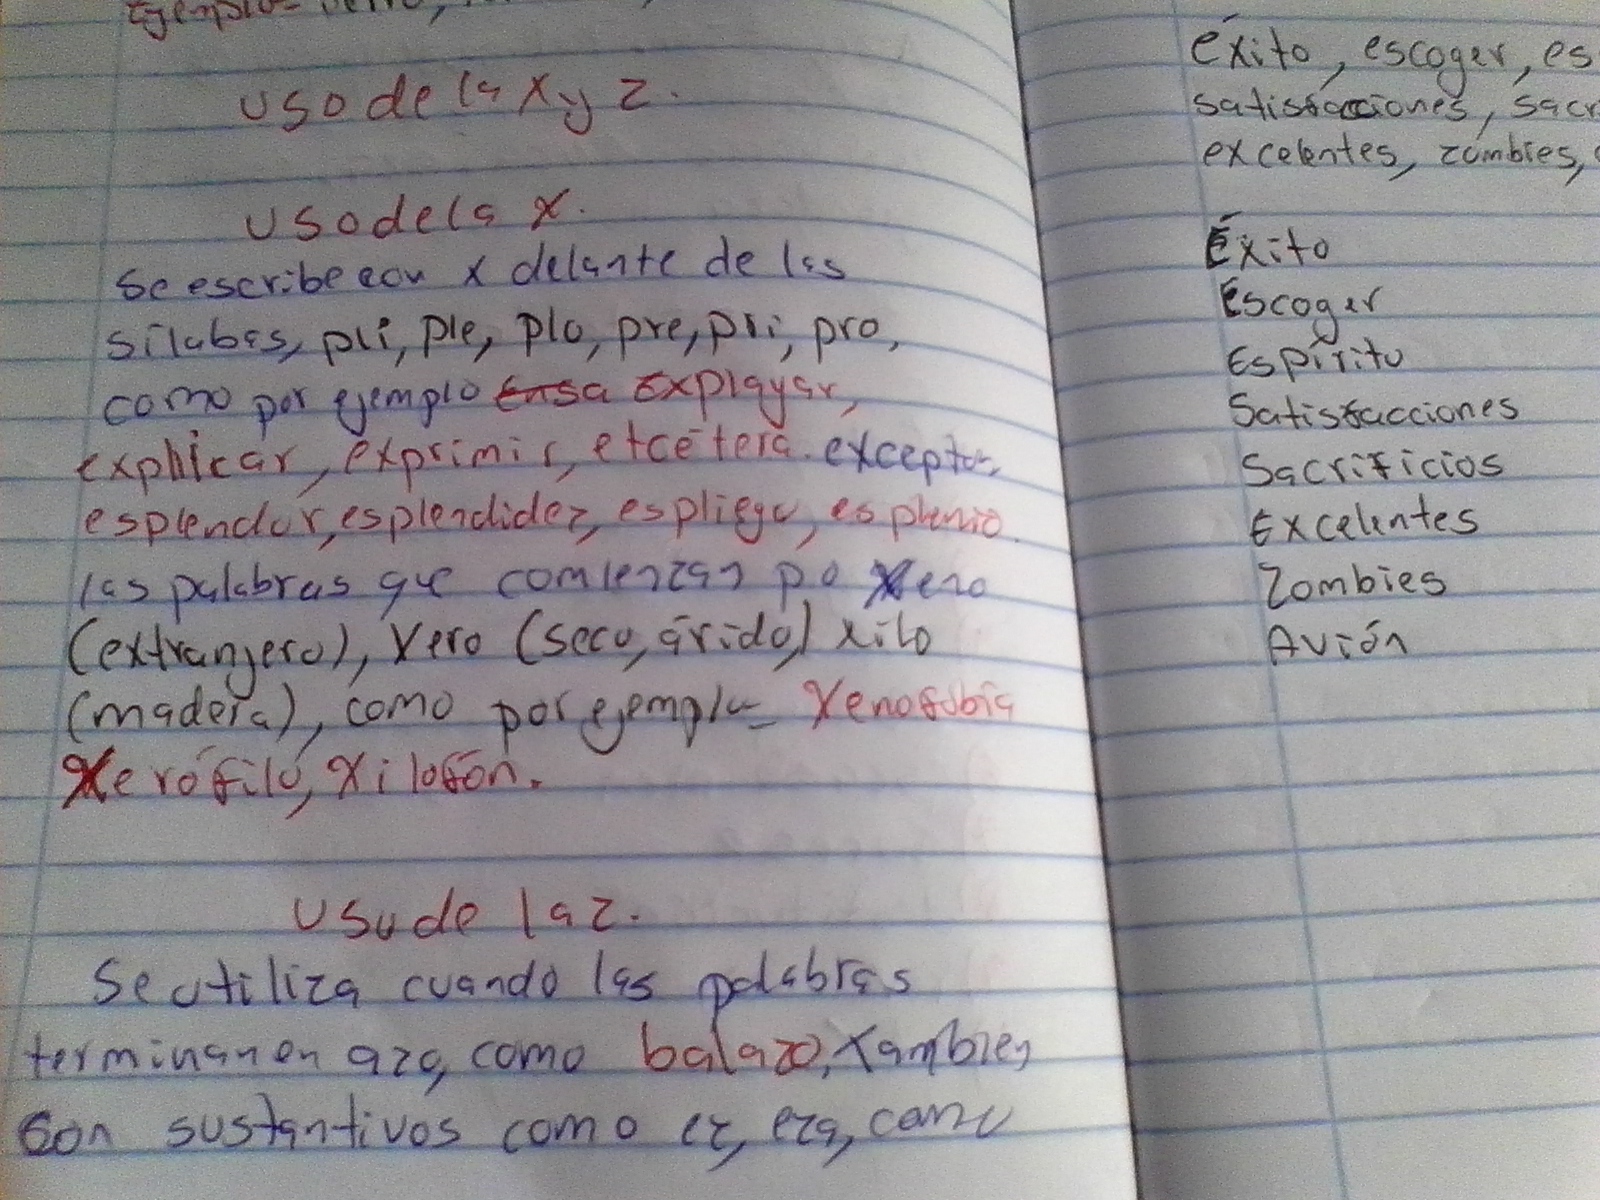 Ejemplo
uso de la x y z.
uso de la x.
Se escribe con x delante de las
sílabas, pli, ple, plo, pre, pri, pro,
como por ejemplo Explayar,
explicar, exprimir, etcétera. excepto,
esplendor, esplendidez, espliego, esplenio.
las palabras que comienzan po xeno
(extranjero), xero (seco, árido,) xilo
(madera), como por ejemplo xenofobia
xerófilo, xilofón.
uso de la z.
Se utiliza cuando las palabras
terminan en azo, como balazo, también
son sustantivos como ez, eza, como
éxito, escoger, es
satisfacciones, sacr
excelentes, zombies,
Éxito
Escoger
Espíritu
Satisfacciones
Sacrificios
Excelentes
Zombies
Avión